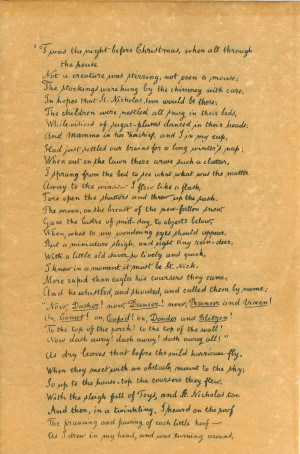 'Twas the night before Christmas, when all through
the house
Not a creature was stirring, not even a mouse;
The stockings were hung by the chimney with care,
In hopes that St. Nicholas soon would be there;
The children were nestled all snug in their beds,
While visions of sugar-plums danced in their heads;
And Mamma in her 'kerchief, and I in my cap,
Had just settled our brains for a long winter's nap;
When out on the lawn there arose such a clatter,
I sprang from the bed to see what was the matter.
Away to the window I flew like a flash,
Tore open the shutters and threw up the sash.
The moon, on the breast of the new-fallen snow,
Gave the lustre of mid-day to objects below,
When, what to my wondering eyes should appear,
But a miniature sleigh, and eight tiny rein-deer,
With a little old driver, so lively and quick,
I knew in a moment it must be St. Nick.
More rapid than eagles his coursers they came,
And he whistled, and shouted, and called them by name;
"Now, Dasher! now, Dancer! now, Prancer and Vixen!
On, Comet! on, Cupid! on, Donder and Blitzen!
To the top of the porch! to the top of the wall!
Now dash away! dash away! dash away all!"
As dry leaves that before the wild hurricane fly,
When they meet with an obstacle, mount to the sky;
So up to the house-top the coursers they flew,
With the sleigh full of Toys, and St. Nicholas too.
And then, in a twinkling, I heard on the roof
The prancing and pawing of each little hoof—
As I drew in my head, and was turning around,